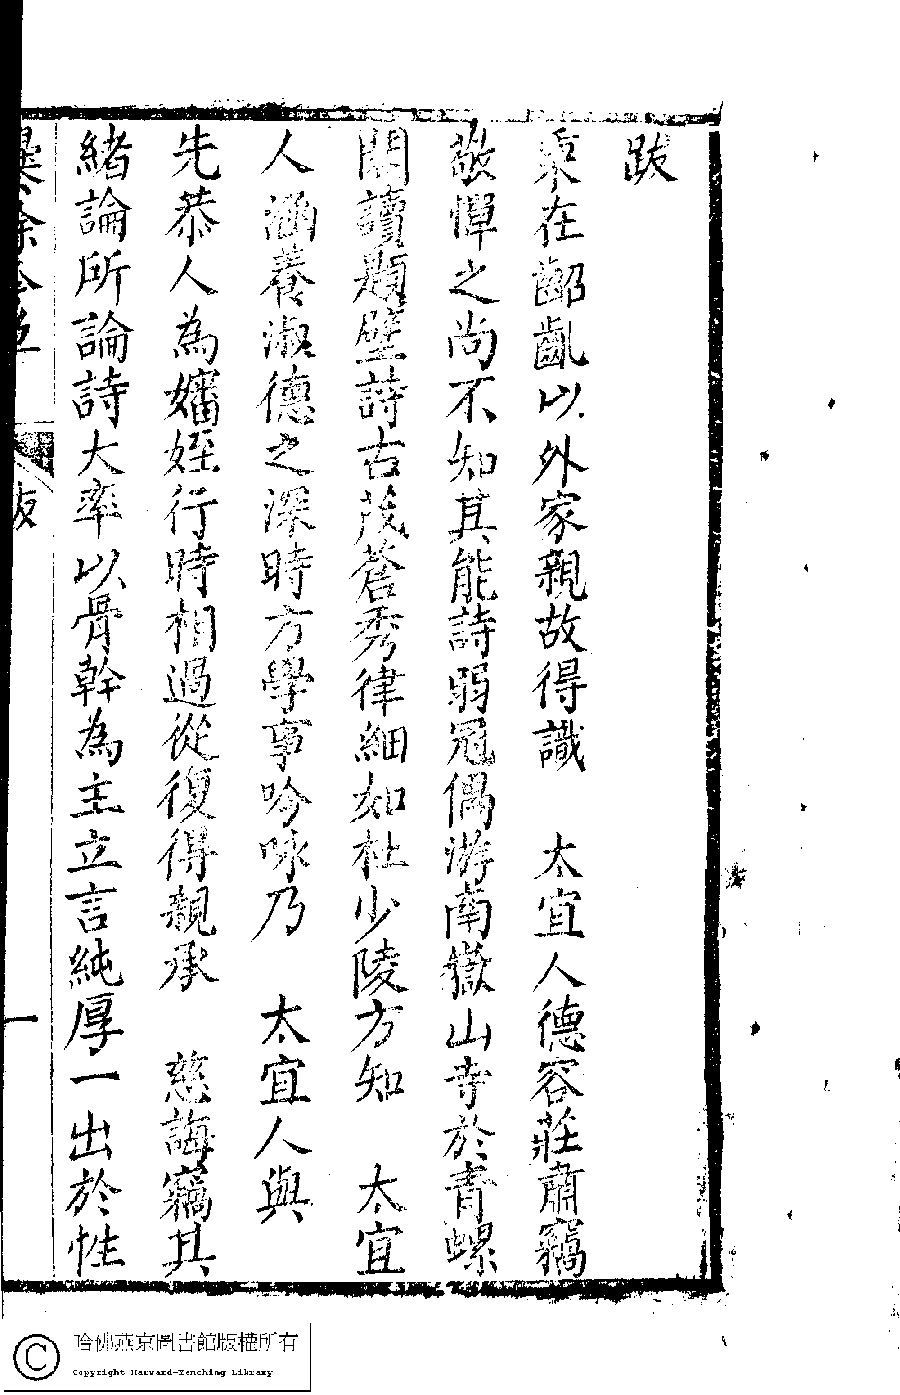 跋
在齠齓以外家親故得識　太宜人德容莊肅竊
敬憚之尚不知其能詩弱冠偶游南嶽山寺於青螺
閣讀題壁詩古茂蒼秀律細如杜少陵方知　太宜
人涵養淑德之深時方學事吟咏乃　太宜人與
先恭人為嬸姪行時相過從復得親承　慈誨竊其
緒論所論詩大率以骨幹為主立言純厚一出於性
跋
一
哈佛燕京圖書館版權所有
Copyright Harvard-Yenching Library